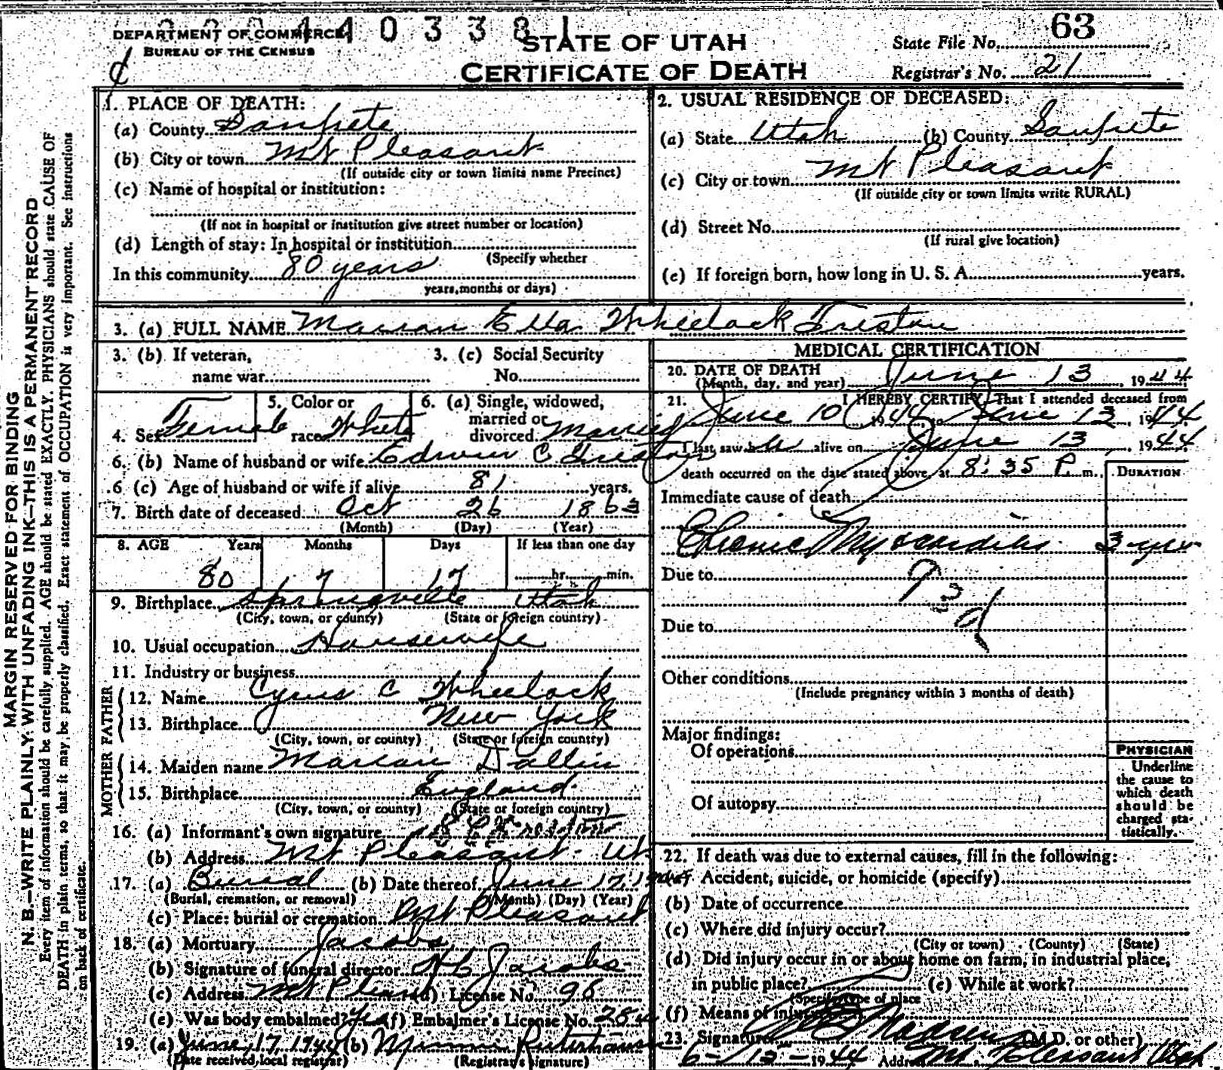 DEPARTMENT OF COMMERCE
BUREAU OF THE CENSUS
STATE OF UTAH
CERTIFICATE OF DEATH
State File No. 63
Registrar's No. 21
MARGIN RESERVED FOR BINDING
N. B.—WRITE PLAINLY, WITH UNFADING INK—THIS IS A PERMANENT RECORD
Every item of information should be carefully supplied. AGE should be stated EXACTLY. PHYSICIANS should state CAUSE OF
DEATH in plain terms, so that it may be properly classified. Exact statement of OCCUPATION is very important. See instructions
on back of certificate.
1. PLACE OF DEATH:
(a) County Sanpete
(b) City or town Mt Pleasant
(If outside city or town limits name Precinct)
(c) Name of hospital or institution:
(If not in hospital or institution give street number or location)
(d) Length of stay: In hospital or institution
(Specify whether
In this community 80 years
years, months or days)
2. USUAL RESIDENCE OF DECEASED:
(a) State Utah (b) County Sanpete
(c) City or town Mt Pleasant
(If outside city or town limits write RURAL)
(d) Street No.
(If rural give location)
(e) If foreign born, how long in U. S. A. years.
3. (a) FULL NAME Marian Ella Wheelock
3. (b) If veteran, name war
3. (c) Social Security No.
4. Sex Female
5. Color or race White
6. (a) Single, widowed, married or divorced Married
6. (b) Name of husband or wife Edwin C
6 (c) Age of husband or wife if alive 81 years.
7. Birth date of deceased Oct 26 1863
(Month) (Day) (Year)
8. AGE Years Months Days If less than one day
80 7 17 hr. min.
9. Birthplace Springville Utah
(City, town, or county) (State or foreign country)
10. Usual occupation Housewife
11. Industry or business
FATHER
12. Name Cyrus C Wheelock
13. Birthplace New York
(City, town, or county) (State or foreign country)
MOTHER
14. Maiden name Marian Dallin
15. Birthplace England
(City, town, or county) (State or foreign country)
16. (a) Informant's own signature
(b) Address Mt Pleasant Ut
17. (a) Burial (b) Date thereof June 17, 1944
(Burial, cremation, or removal) (Month) (Day) (Year)
(c) Place: burial or cremation Mt Pleasant
18. (a) Mortuary Jacobs
(b) Signature of funeral director Jacobs
(c) Address Mt Pleasant (d) License No. 96
(e) Was body embalmed? Yes (f) Embalmer's License No. 284
19. (a) June 17, 1944 (b)
(Date received local registrar) (Registrar's signature)
MEDICAL CERTIFICATION
20. DATE OF DEATH
(Month, day, and year) June 13, 1944
21. I HEREBY CERTIFY, That I attended deceased from
June 10, 1944 to June 13, 1944
I last saw her alive on June 13, 1944
death occurred on the date stated above, at 8:35 P m.
DURATION
Immediate cause of death
Chronic Myocarditis 3 yrs
Due to 93d
Due to
Other conditions
(Include pregnancy within 3 months of death)
Major findings:
Of operations
Of autopsy
PHYSICIAN
Underline
the cause to
which death
should be
charged sta-
tistically.
22. If death was due to external causes, fill in the following:
(a) Accident, suicide, or homicide (specify)
(b) Date of occurrence
(c) Where did injury occur?
(City or town) (County) (State)
(d) Did injury occur in or about home on farm, in industrial place,
in public place? (e) While at work?
(Specify type of place
(f) Means of injury
23. Signature Madsen (M.D. or other)
6-13-1944 Address Mt. Pleasant Utah